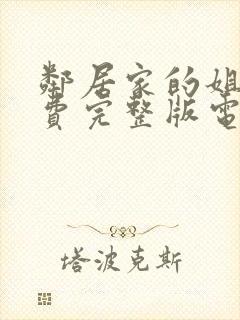 鄰居家的姐
費完整版電
塔波克斯